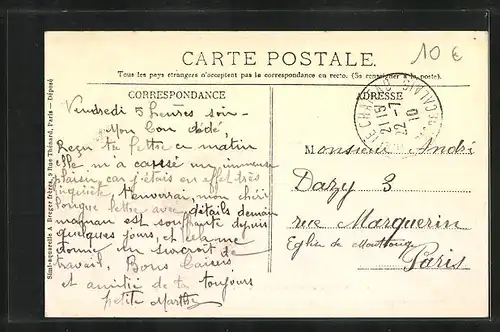 10 €
CARTE POSTALE.
Tous les pays étrangers n'acceptent pas la correspondance en recto. (Se renseigner à la poste).
CORRESPONDANCE
ADRESSE
21 15
22 -7
10
Vendredi 5 heures soir -
Mon bon dédé,
Reçu ta lettre ce matin
elle m'a causé un immense
plaisir, car j'étais en effet très
inquiète. T'enverrai, mon chéri
longue lettre avec détails demain
maman est souffrante depuis
quelques jours, et cela me
donne un surcroit de
travail, Bons baisers
et amitié de ta toujours
petite Marthe
Monsieur André
Dazy 3
rue Marguerin
Eglise de Montrouge
Paris
Simi-aquarelle A. Breger frères, 9 Rue Thénard, Paris — Déposé